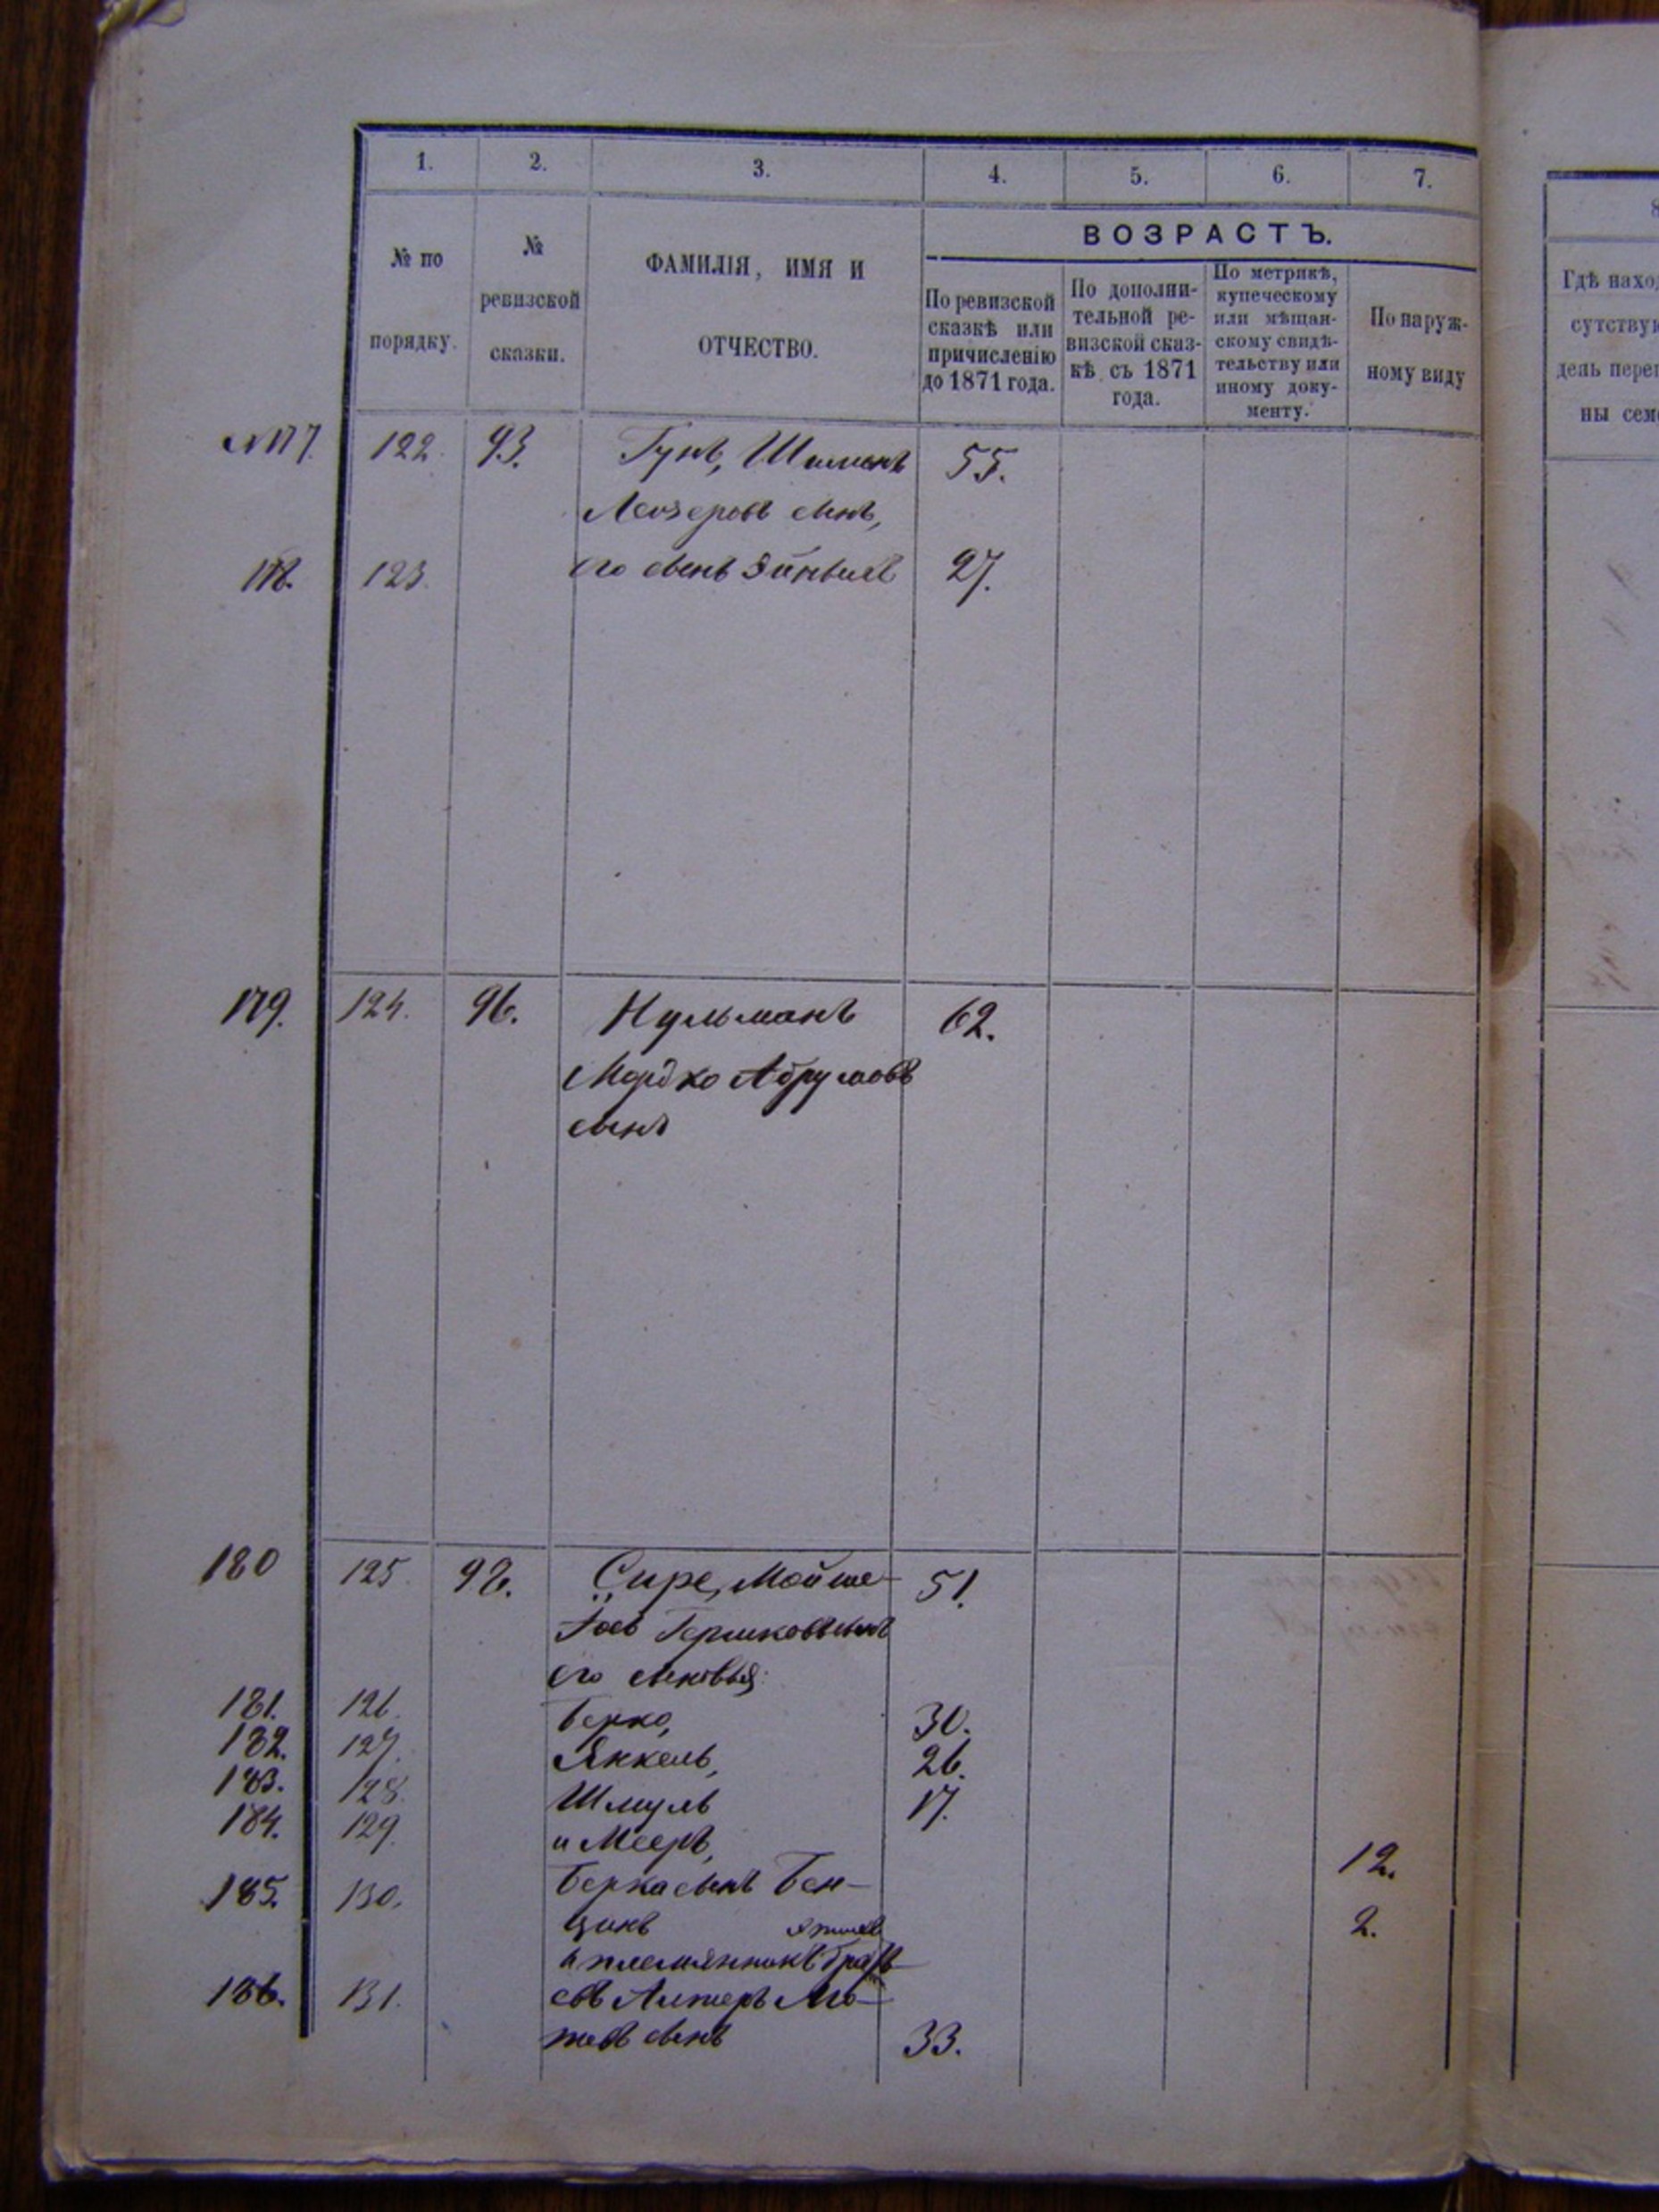 1. 2. 3. 4. 5. 6. 7.
ВОЗРАСТЪ.
№ по
порядку.
№
ревизской
сказки.
ФАМИЛІЯ, ИМЯ И
ОТЧЕСТВО.
По ревизской
сказкѣ или
причисленію
до 1871 года.
По дополни-
тельной ре-
визской сказ-
кѣ съ 1871
года.
По метрикѣ,
купеческому
или мѣщан-
скому свидѣ-
тельству или
иному доку-
менту.
По наруж-
ному виду
8
Гдѣ наход
сутствую
день пере
ны сем
№177. 122. 93. Гунъ, Шименъ 55.
Лейзеровъ сынъ,
178. 123. его сынъ 27.
179. 124. 96. Нульманъ 62.
Мордко Абрумовъ
сынъ
180 125. 98. Сире, Мойше- 51.
Гершковъ сынъ
его сыновья:
181. 126. Берко, 30.
182. 127. Янкель, 26.
183. 128. Шмуль 17.
184. 129. и Мееръ, 12.
185. 130. Берка сынъ Бен-
ціонъ 2.
и племянникъ
186. 131. Алтеръ Мо-
сынъ 33.